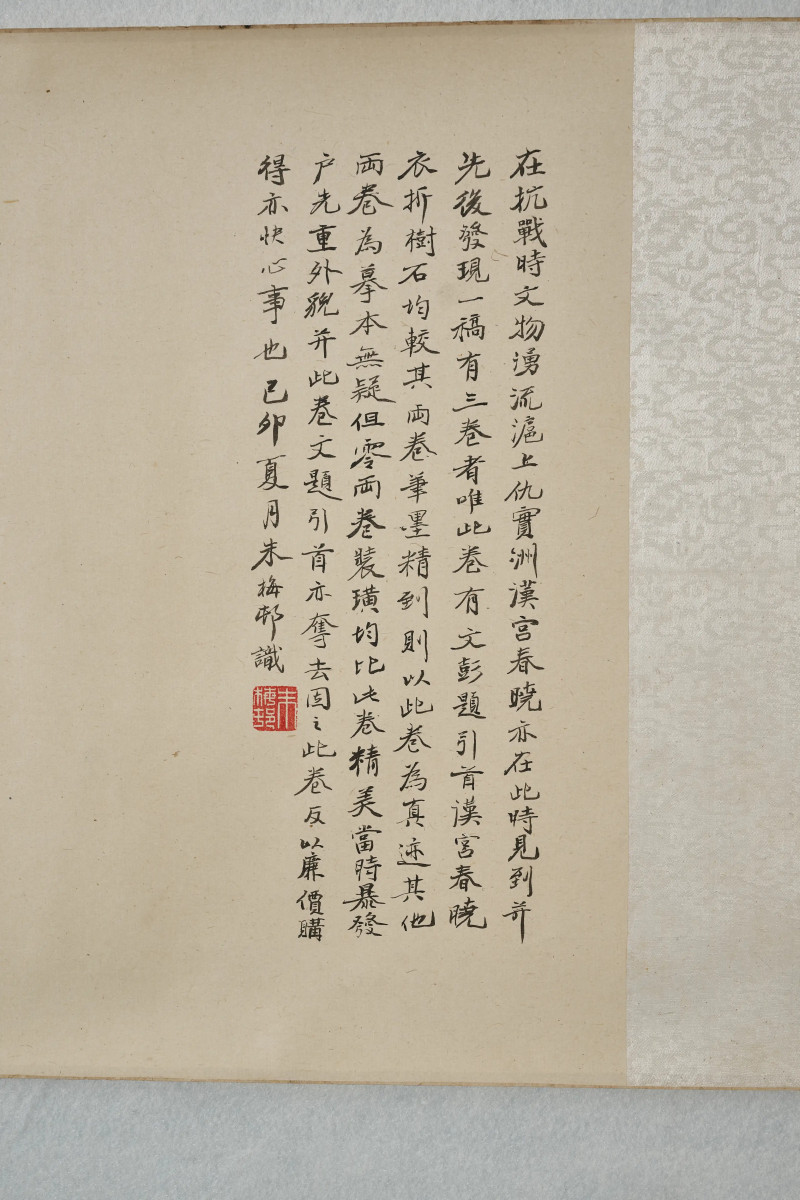 在抗戰時文物湧流滬上仇實洲漢宮春曉亦在此時見到并
先後發現一稿有三卷者唯此卷有文彭題引首漢宮春曉
衣折樹石均較其両卷筆墨精到則以此卷為真迹其他
両卷為摹本無疑但零両卷裝璜均比此卷精美當時暴發
户先重外貌并此卷文題引首亦奪去因之此卷反以廉價購
得亦快心事也己卯夏月朱梅邨識
朱梅邨